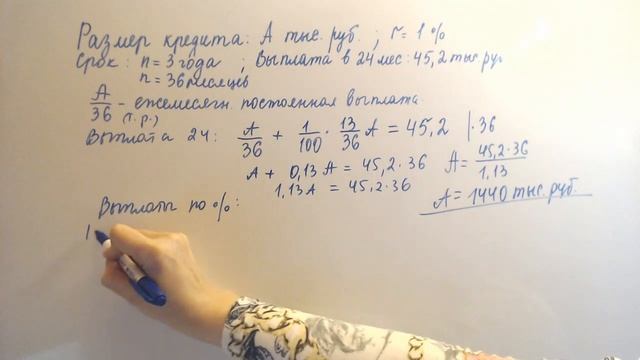 Размер кредита: А тыс. руб. ; r = 1 %
Срок: n = 3 года ; Выплата в 24 мес: 45,2 тыс. ру
n = 36 месяцев
А/36 - ежемесячн. постоянная выплата.
(т.р.)
Выплата 24: А/36 + 1/100 · 13/36 А = 45,2 | · 36
А + 0,13 А = 45,2 · 36 А = 45,2 · 36/1,13
1,13 А = 45,2 · 36 А = 1440 тыс. руб.
Выплаты по %: